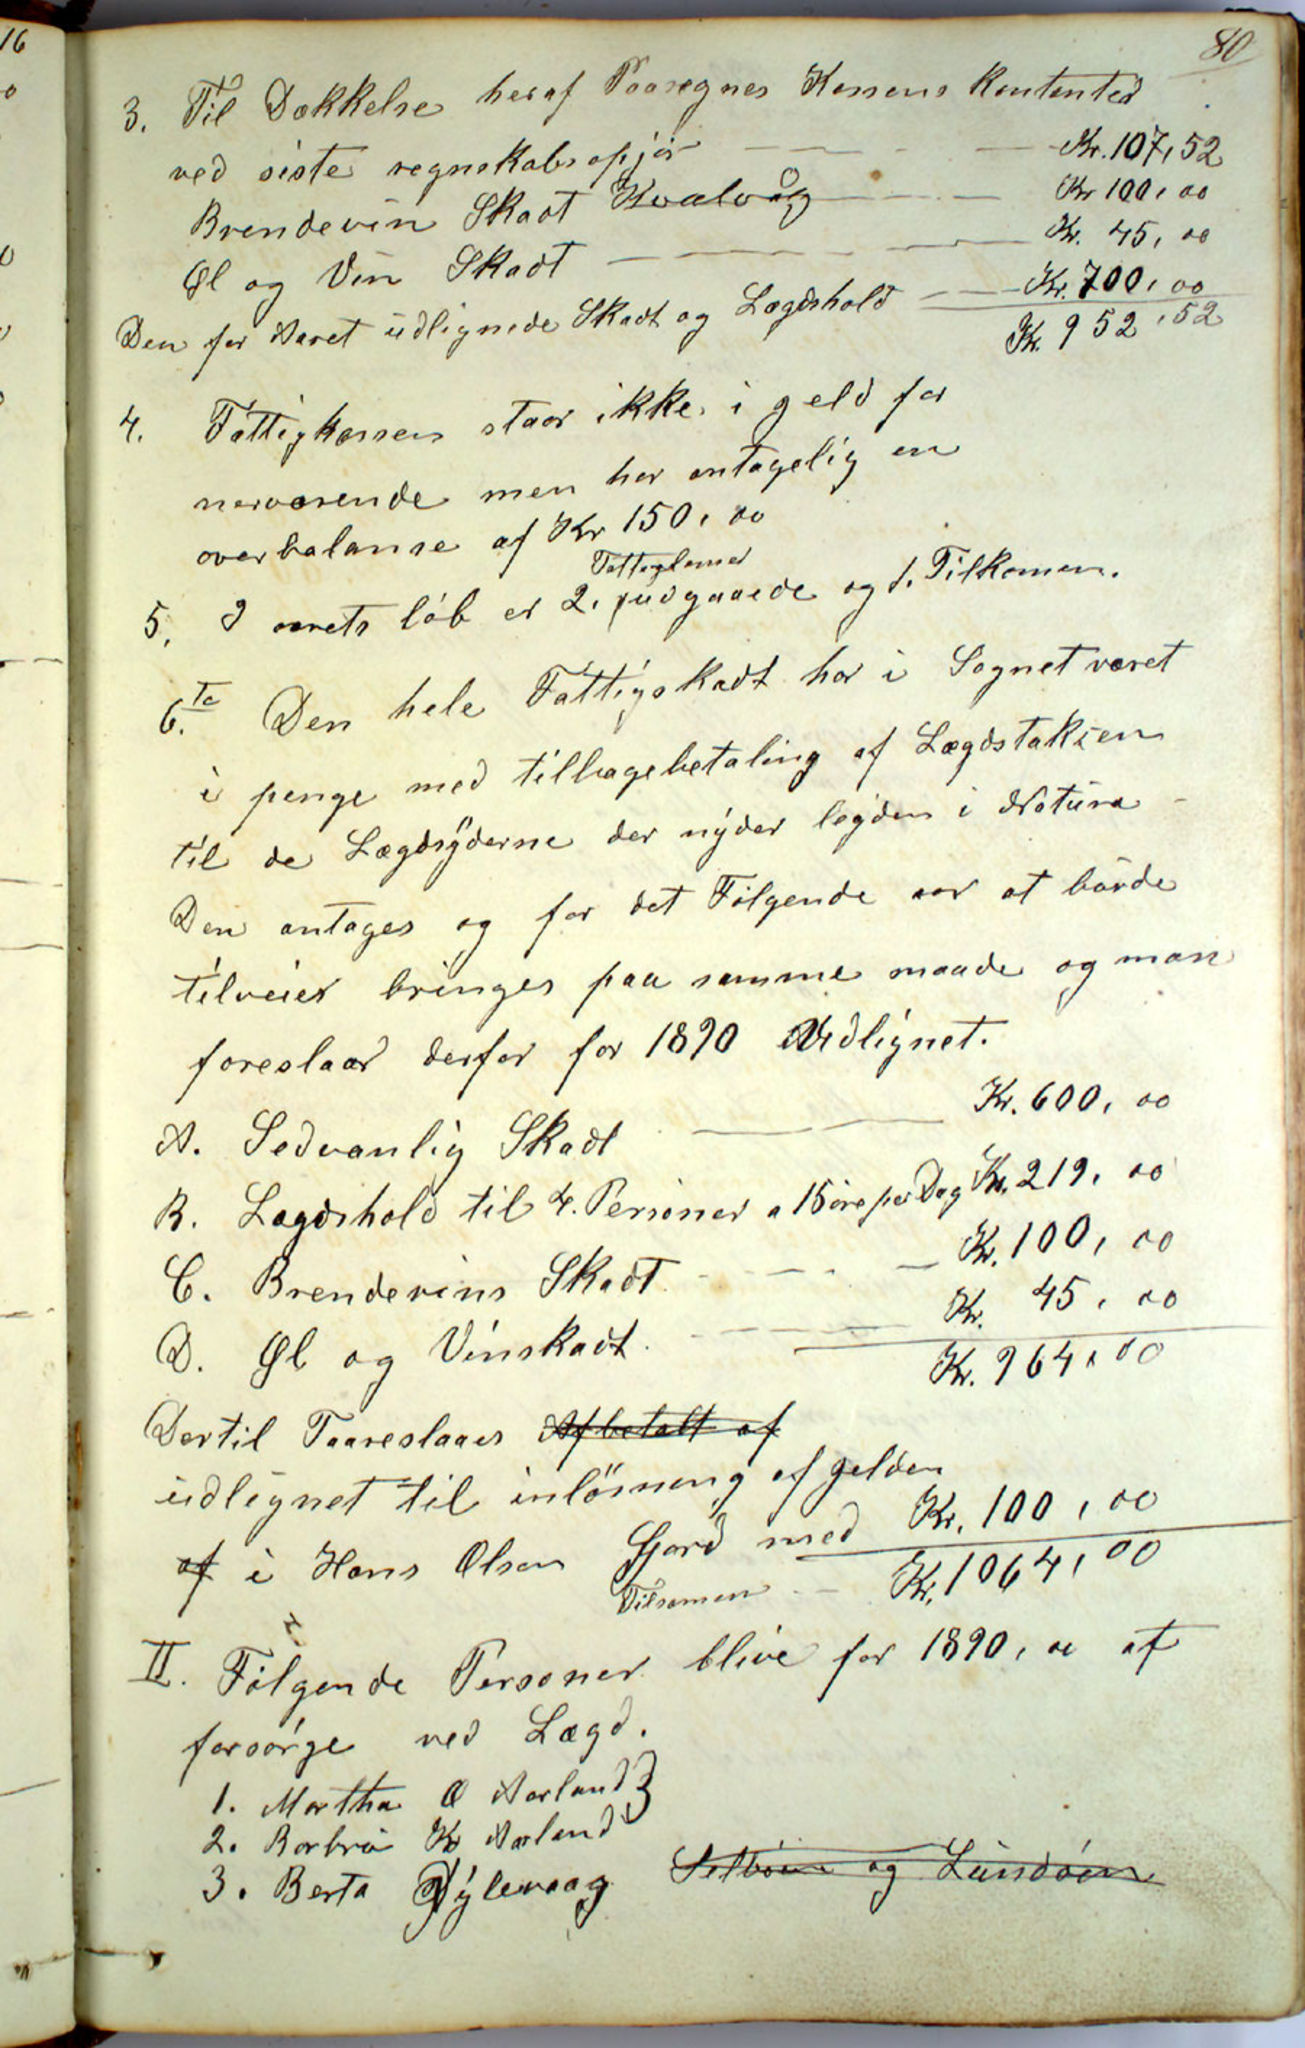 80
3. Til Dækkelse heraf Paaregnes Kassens Kontanter
ved siste regnskabsopjör Kr. 107,52
Brendevin Skadt Kvalvåg Kr 100,00
Øl og Vin Skadt Kr. 45,00
Den for Aaret udlignede Skadt og Lægdshold Kr. 700,00
Kr. 952,52
4. Fattigkassen staar ikke i geld for
nerværende men har antagelig en
overbalanse af Kr 150,00
Fattiglemer
5. I aarets löb er 2. udgaaede og 1. Tilkomen.
6.te Den hele Fattigskadt har i Sognet været
i penge med tilbagebetaling af Lægdstaksen
til de Lægdsÿderne der nÿder legden i Natura -
Den antages og for det Fölgende aar at börde
tilveier bringes paa samme maade og man
foreslaar derfor for 1890 Udlignet.
A. Sedvanlig Skadt Kr. 600,00
B. Lægdshold til 4. Personer a 15 öre per Dag Kr. 219,00
C. Brendevins Skadt Kr. 100,00
D. Øl og Vinskadt Kr. 45,00
Kr. 964,00
Dertil Faareslaaes Afbetalt af
udlignet til inlösning af gelden
af i Hans Olsen Gjord med Kr. 100,00
Tilsamen Kr. 1064,00
II. Fölgende Personer blive for 1890, at
forsörge ved Lægd.
1. Martha O Aarland
2. Barbra Kr Aarland
3. Berta Dÿlevaag Selböen og Lundöen